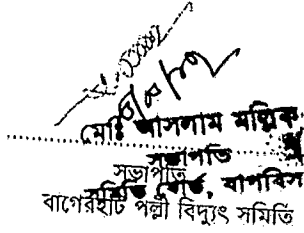 মোঃ আসলাম মল্লিক
সভাপতি
সভাপতি
সমিতি বোর্ড, বাপবিস
বাগেরহাট পল্লী বিদ্যুৎ সমিতি